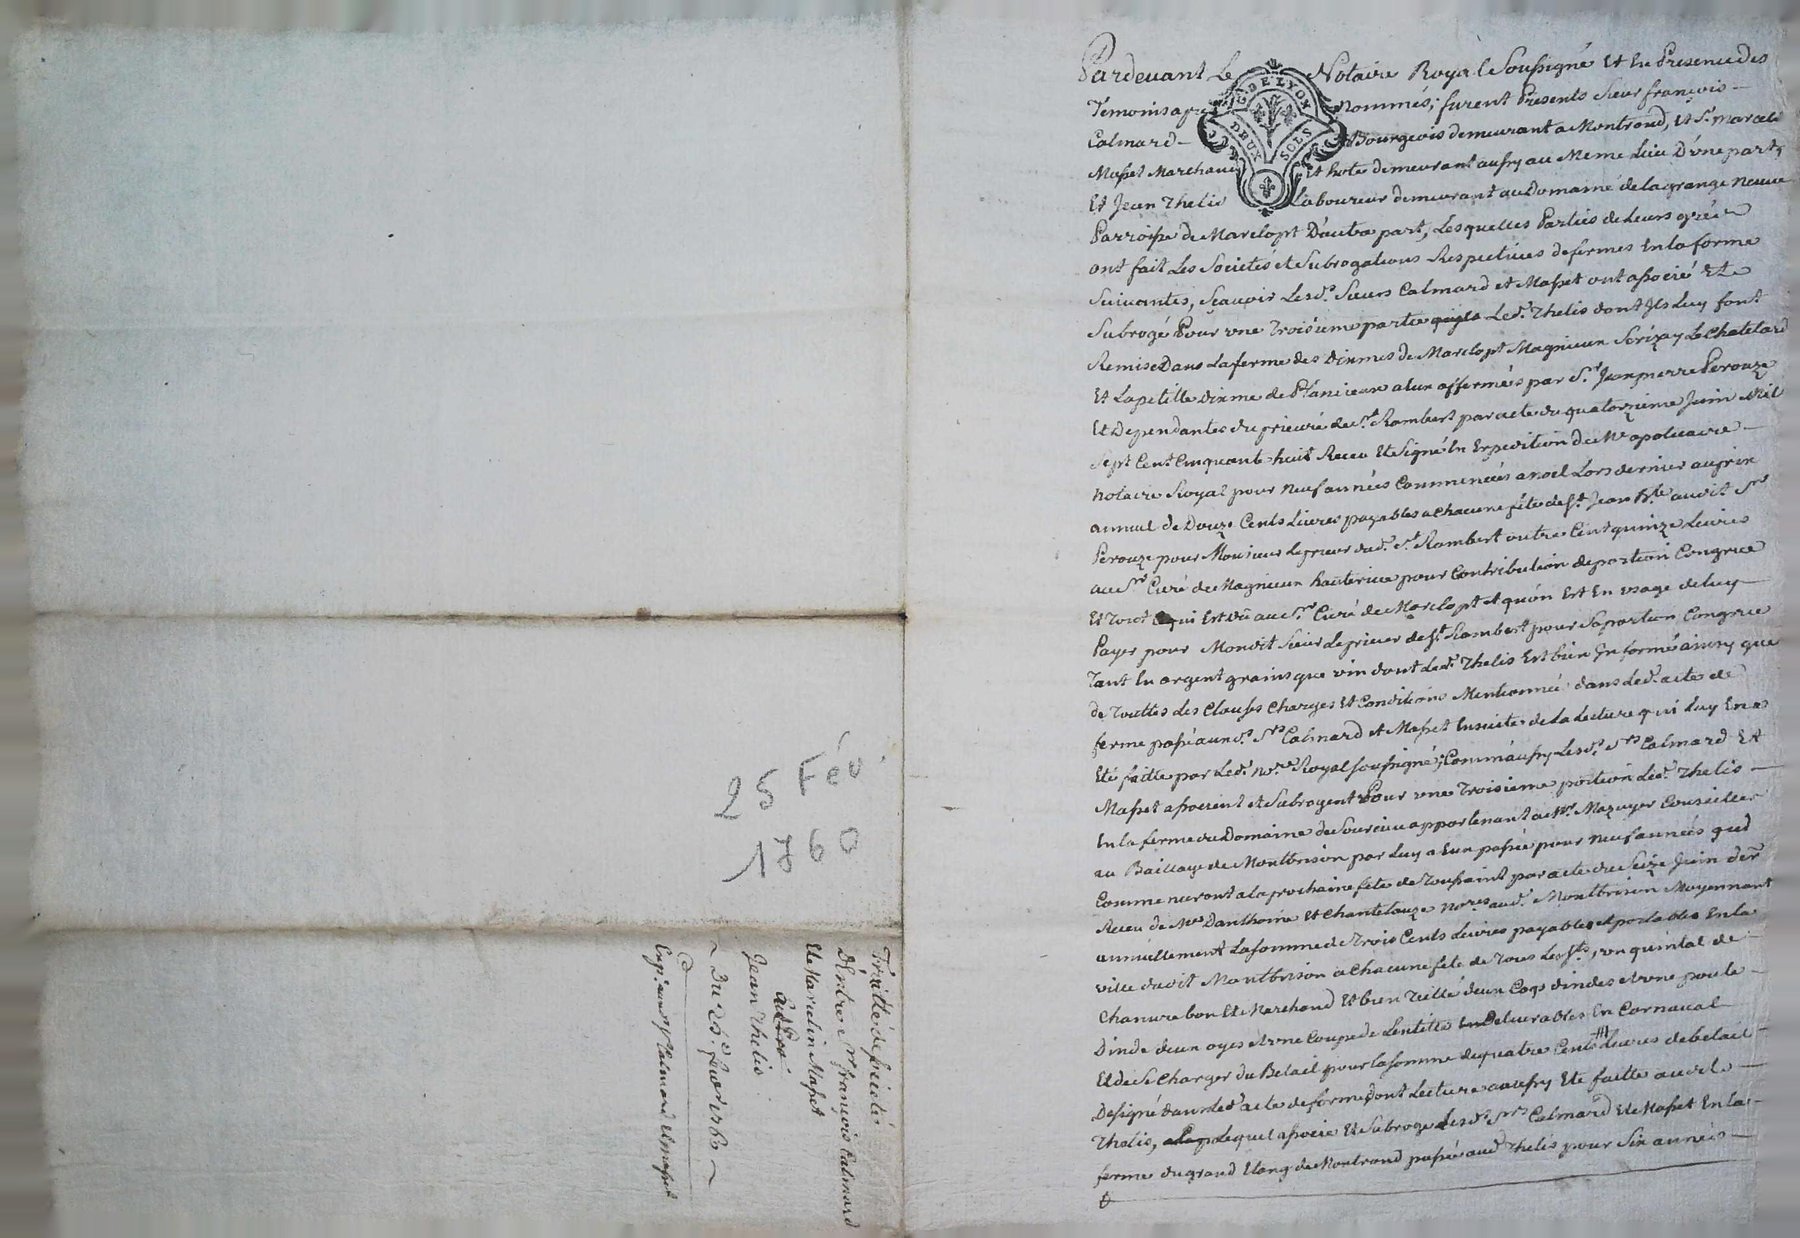 25 Fév
1760
Traitté de societé
D'Entre Sr. françois Calmard
Et Marcelin Masset
Jean Thelis
Du 25e. fevrier 1760
Exp. aux Sr. Calmard et Masset
Pardevant Le Notaire Royal Soussigné Et En Presence des
Temoins apr nommés; furent Presents Sieur françois
Calmard Bourgeois demeurant a Montrond, Et Sr. Marcelin
Masset Marchand Et hote demeurant aussy au Meme Lieu D'une part,
Et Jean Thelis Laboureur demeurant au Domaine de la grange Neuve
Parroisse de Marclopt D'autre part, Lesquelles Parties de Leurs grés
ont fait Les Societés et Subrogations Respectives de fermes En la forme
Suivantes, Sçavoir Lesd. Sieurs Calmard et Masset ont associé Et
Subrogé Pour une Troisieme partie Led. Thelis dont Ils Luy font
Remise Dans La ferme des dixmes de Marclopt Magnieu Sourizey Le Chatelard
Et La petitte dixme de St. ancieux a Eux affermés par Sr. Jean pierre Perouze
Et Dependantes du prieuré de St. Rambert par acte du quatorzieme Juin Mil
Sept Cent Cinquante huit Receu Et Signé En Expedition de Me apoticaire
Notaire Royal pour Neuf années Commencées a noel Lors dernier au prix
annuel de Douze Cents Livres payables a chacune fête de St. Jean Bte. audit Sr.
Perouze pour Monsieur Le prieur dud. St. Rambert outre Cent quinze Livres
au Sr. Curé de Magnieu hauterive pour Contribution de portion Congrue
Et Tout Ce qui Est dû au Sr. Curé de Marclopt et qu'on Est En usage de luy
Payer pour Mondit Sieur Le prieur de St. Rambert pour Sa portion Congrue
Tant En argent grains que vin dont Led. Thelis Est bien Informé ainsy que
de Touttes Les Clauses Charges Et Conditions Mentionnées dans Led. acte de
ferme passé auxd. Srs. Calmard et Masset Ensuite de La Lecture qui Luy En a
Eté faitte par Led. nore. Royal soussigné; Comm'aussy Lesd. Srs. Calmard Et
Masset associent et Subrogent Pour une Troisieme portion Led. Thelis
En la ferme du Domaine de Sourcieu appartenant a Mr. Mazuyer Conseiller
au Baillage de Montbrison par Luy a Eux passée pour neuf années qui
Commenceront a la prochaine fête de Toussaint par acte du Seize Juin der.
Receu de Mes Danthoine Et Chantelauze nores. aud. Montbrison Moyennant
annuellement La Somme de Trois Cents Livres payables et portables En la
ville dudit Montbrison a Chacune fete de Tous Les Sts, un quintal de
Chanvre bon Et Marchand Et bien Teillé deux Coqs dindes et une poule
Dinde deux oyes et une Coupe de Lentille Delivrables En Carnaval
Et de Se Charger du Betail pour la somme de quatre Cents Livres de betail
Designé dans Led. acte de ferme dont Lecture aussy Eté faitte audit
Thelis, Lequel associe Et Subroge Lesd. Srs. Calmard Et Masset En La
ferme du grand Etang de Montrond passée aud. Thelis pour Six années
G. DE LYON
DEUX SOLS